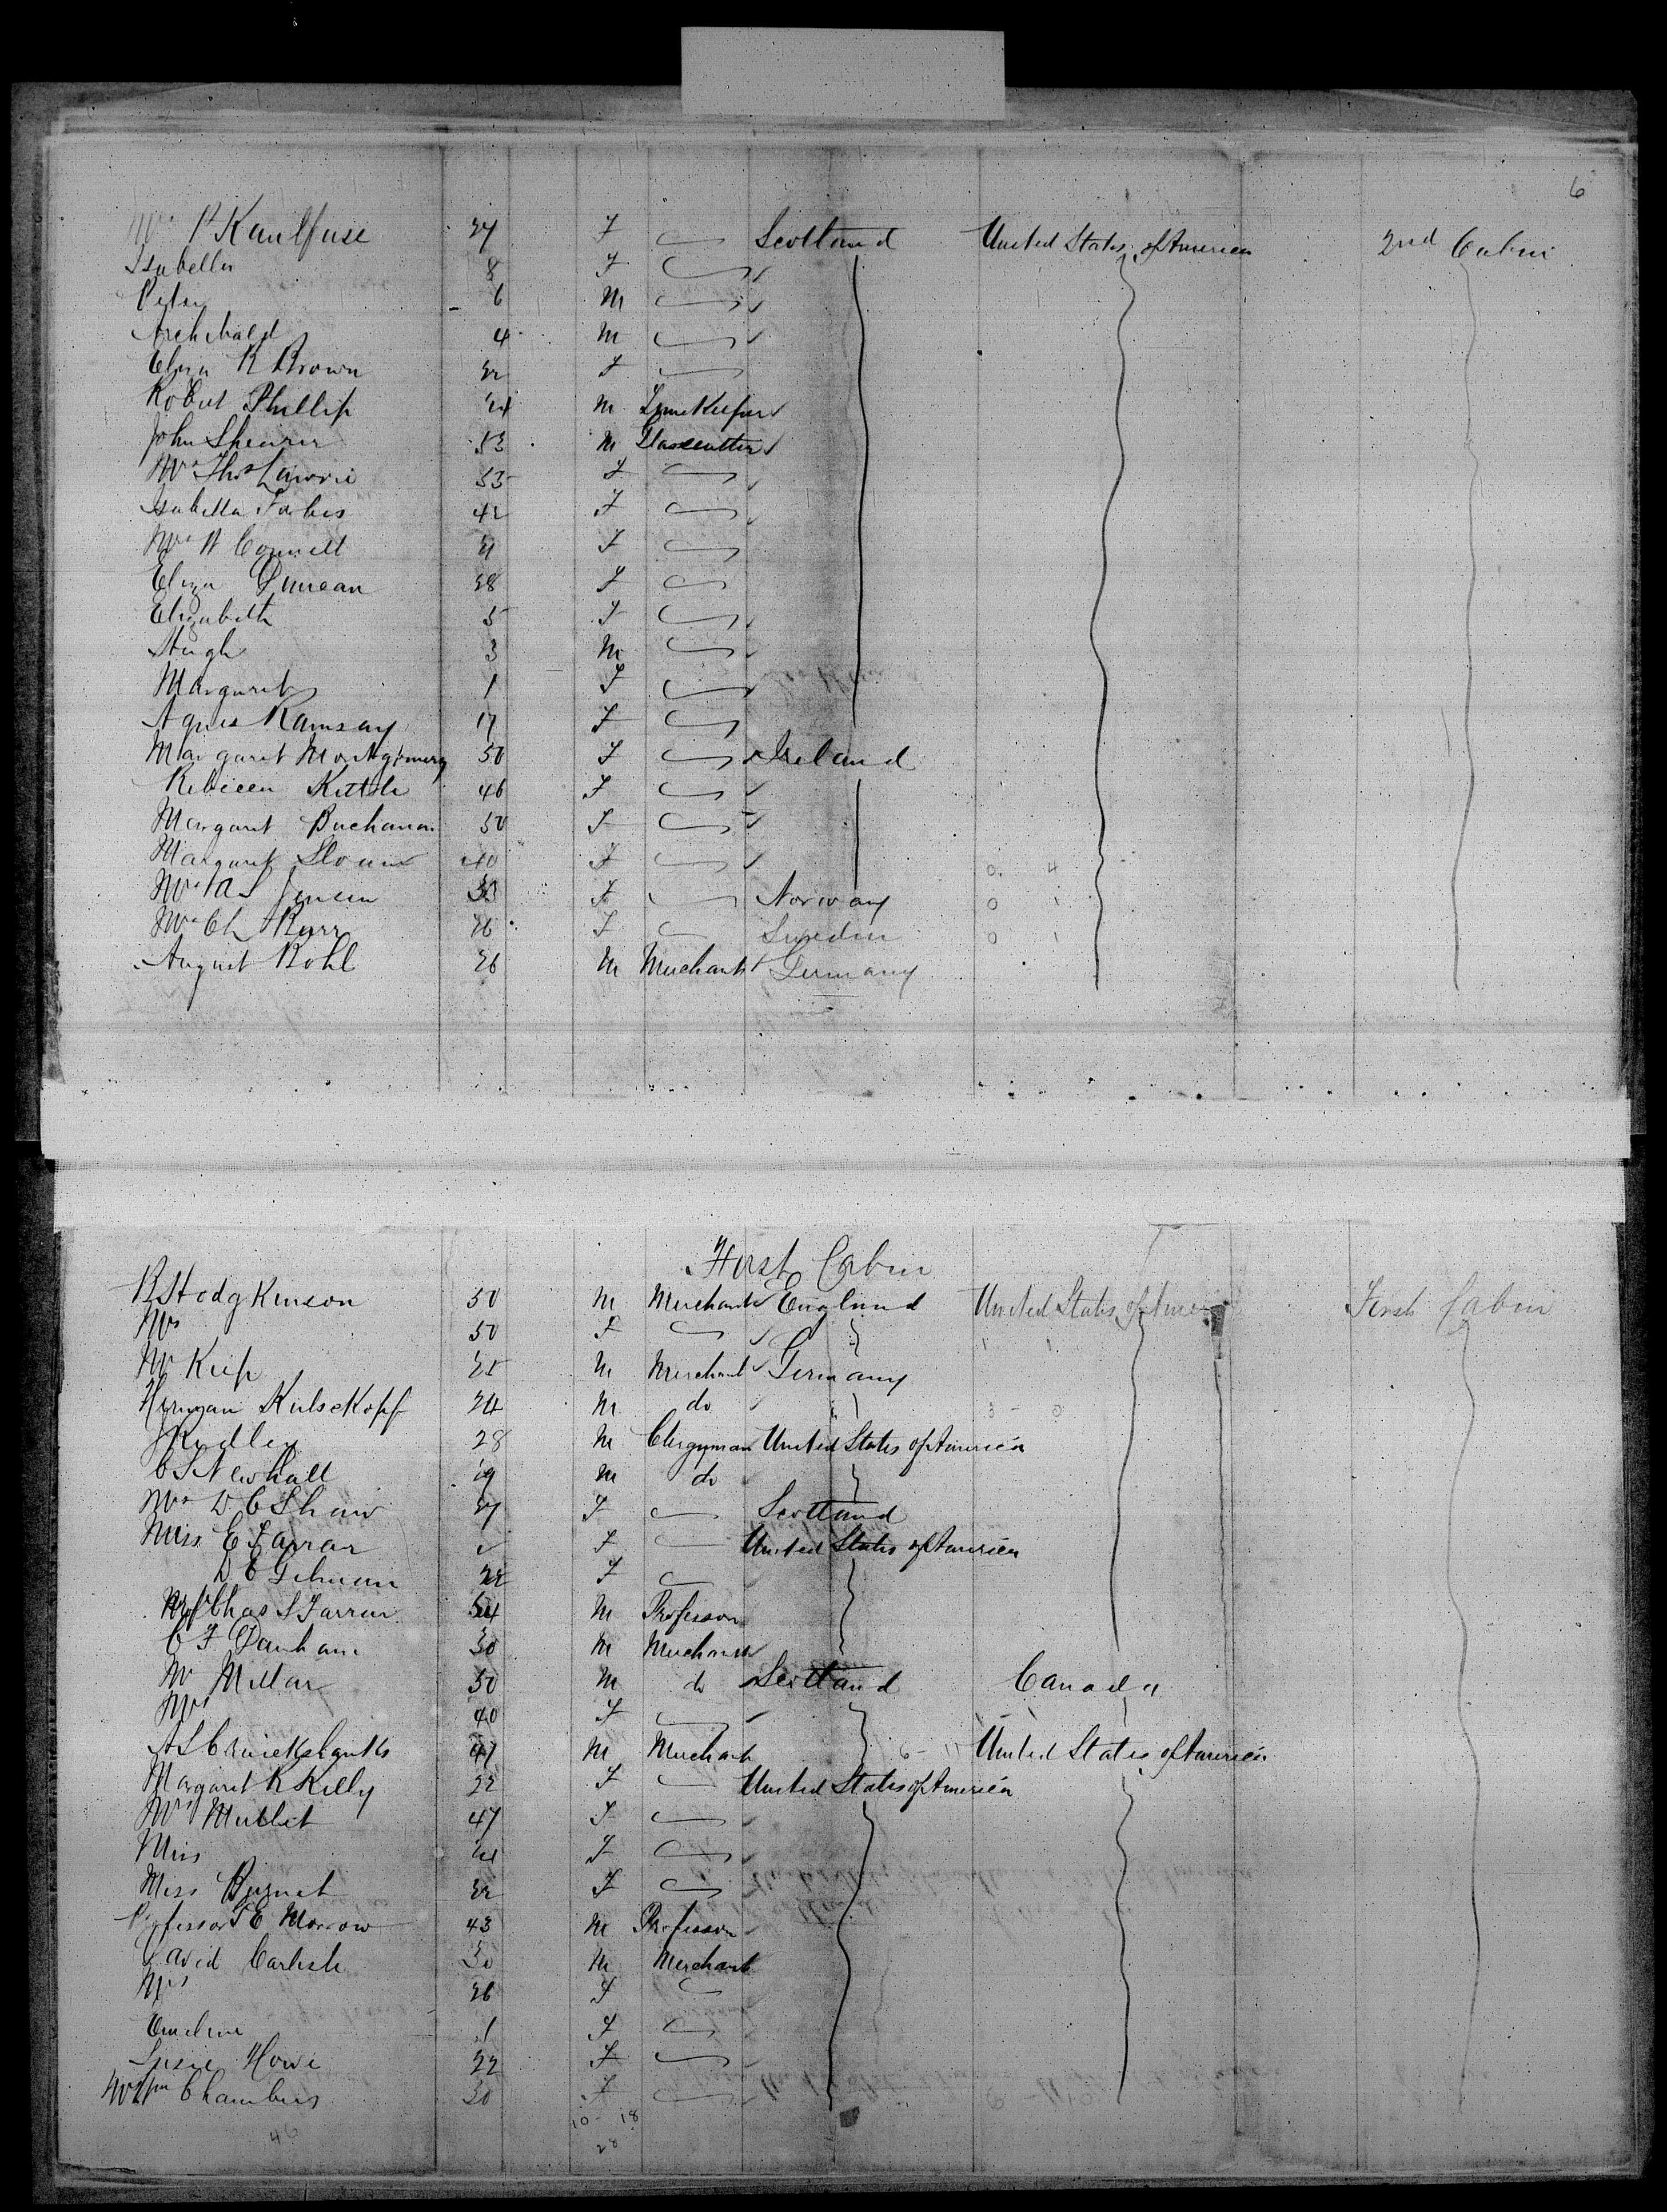 6
Mrs P Kaulfuse 27 F Scotland United States of America 2nd Cabin
Isabella 8 F
Peter 6 M
Archibald 4 M
Eliza R Brown 32 F
Robert Phillip 24 M
John Shearer 53 M
Mrs Thos Lawrie 53 F
Isabella Forbes 42 F
Mrs A Connell F
Eliza Duncan 38 F
Elizabeth 5 F
Hugh 3 M
Margaret 1 F
Agnes Ramsay 17 F
Margaret Montgomery 50 F Ireland
Rebecca Kettle 46 F
Margaret Buchanan 50 F
Margaret Sloan 40 F 0 4
Mrs Jensen 33 F Norway 0 1
Mrs Ch F Sweden 0 1
August Kohl 26 M Merchant Germany
First Cabin
R Hodgkinson 50 M Merchant England United States of America First Cabin
Mrs 50 F 1 1
Mr Keip M Merchant Germany
Herman Kulsekopf 24 M do 3 - 0
J Radley 28 M Clergyman United States of America
C S Newhall 19 M do
Mrs D C Shaw 37 F Scotland
Miss E Farrar F United States of America
D E 22 F
Prof Chas S Farrar 54 M Professor
C F 30 M Merchant
Mr Millar 50 M do Scotland Canada
Mrs 40 F
A S Cruickshanks 47 M Merchant 6 - 11 United States of America
Margaret R Kelly 22 F United States of America
Mrs 47 F
Miss 21 F
Miss 32 F
Professor G E Morrow 43 M Professor
David Carlisle 30 M Merchant
Mrs 26 F
Emeline 1 F
Susie Howe 22 F
Mrs Wm Chambers 30 F
10 - 18
46 28